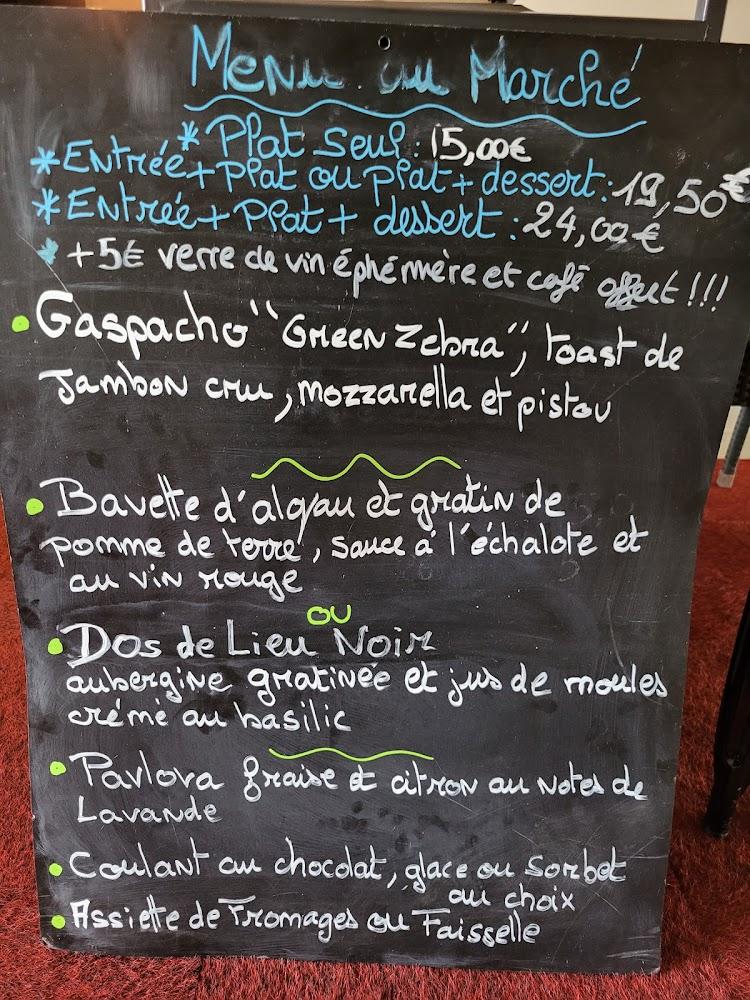 Menu au Marché
* Plat seul : 15,00€
* Entrée + Plat ou plat + dessert : 19,50€
* Entrée + Plat + dessert : 24,00€
* +5€ verre de vin éphémère et café offert !!!
• Gaspacho "Green Zebra", toast de
Jambon cru, mozzarella et pistou
• Bavette d'aloyau et gratin de
pomme de terre, sauce à l'échalote et
au vin rouge
ou
• Dos de Lieu Noir
aubergine gratinée et jus de moules
crémé au basilic
• Pavlova fraise et citron au notes de
Lavande
• Coulant au chocolat, glace ou sorbet
au choix
• Assiette de Fromages ou Faisselle